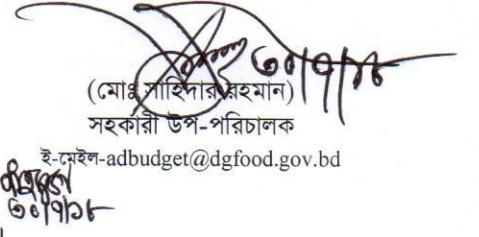 ৩০/৭/১৮
(মোঃ সাহিদার রহমান)
সহকারী উপ-পরিচালক
ই-মেইল-adbudget@dgfood.gov.bd
৩০/৭/১৮